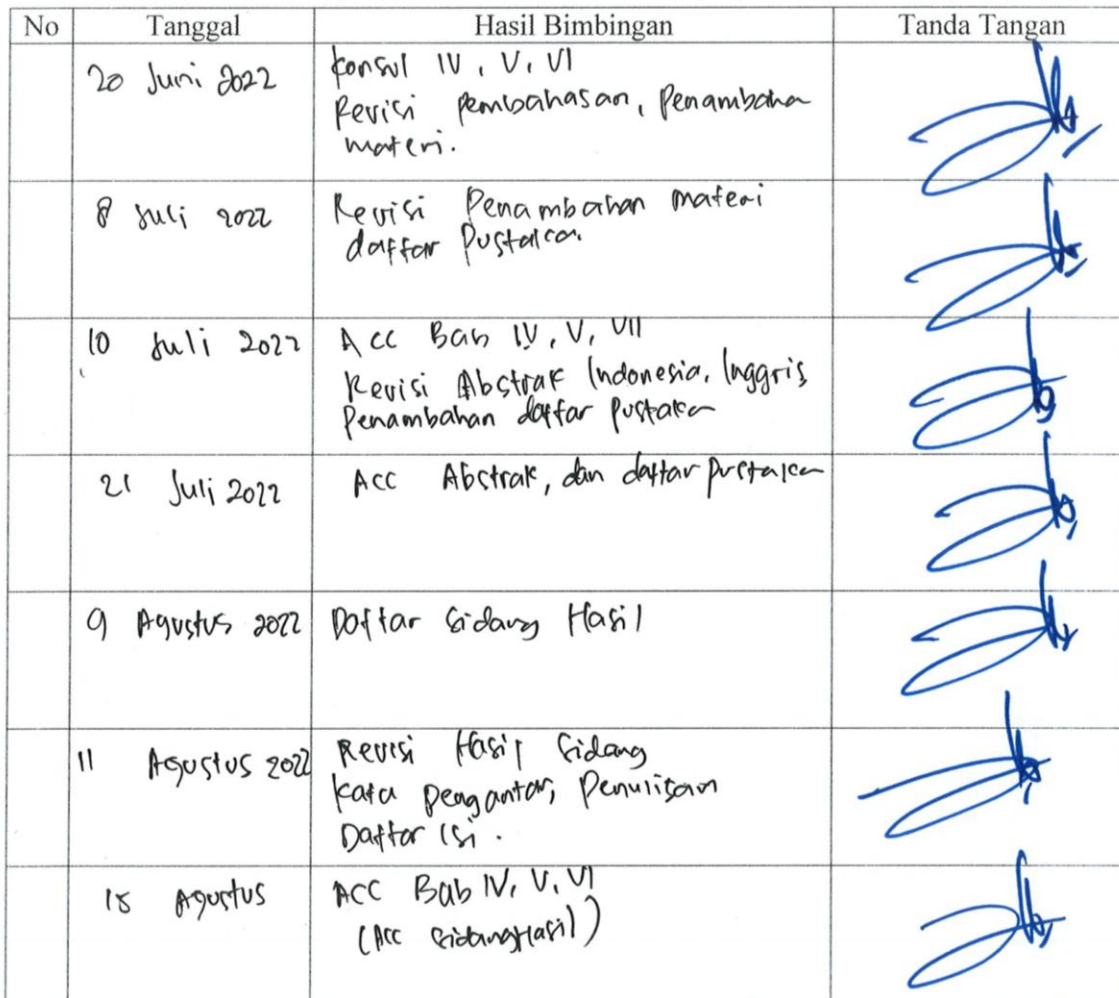 No Tanggal Hasil Bimbingan Tanda Tangan
20 Juni 2022
Konsul IV, V, VI
Revisi pembahasan, Penambaha
materi.
8 Juli 2022
Revisi Penambahan materi
daftar Pustaka.
10 Juli 2022
Acc Bab IV, V, VII
Revisi Abstrak Indonesia, Inggris,
Penambahan daftar pustaka
21 Juli 2022
Acc Abstrak, dan daftar pustaka
9 Agustus 2022
Daftar Sidang Hasil
11 Agustus 2022
Revisi Hasil Sidang
Kata Pengantar, Penulisan
Daftar Isi.
15 Agustus
ACC Bab IV, V, VI
(Acc Sidang Hasil)